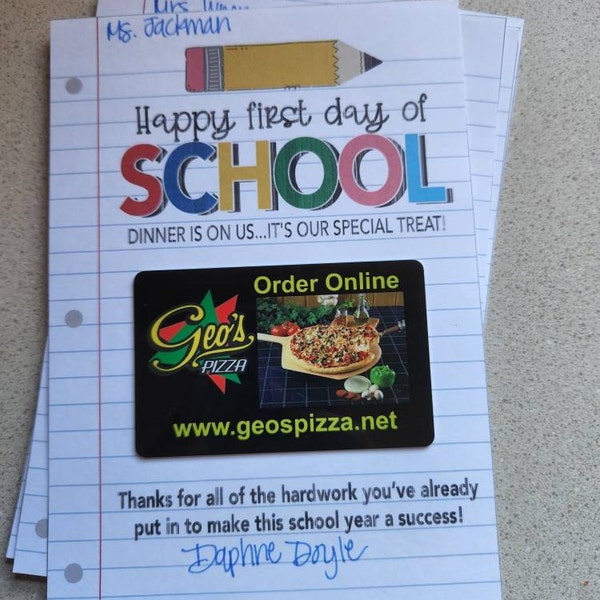 Mrs.
Ms. Jackman
Happy first day of
SCHOOL
DINNER IS ON US...IT'S OUR SPECIAL TREAT!
Order Online
Geo's
PIZZA
www.geospizza.net
Thanks for all of the hardwork you've already
put in to make this school year a success!
Daphne Doyle